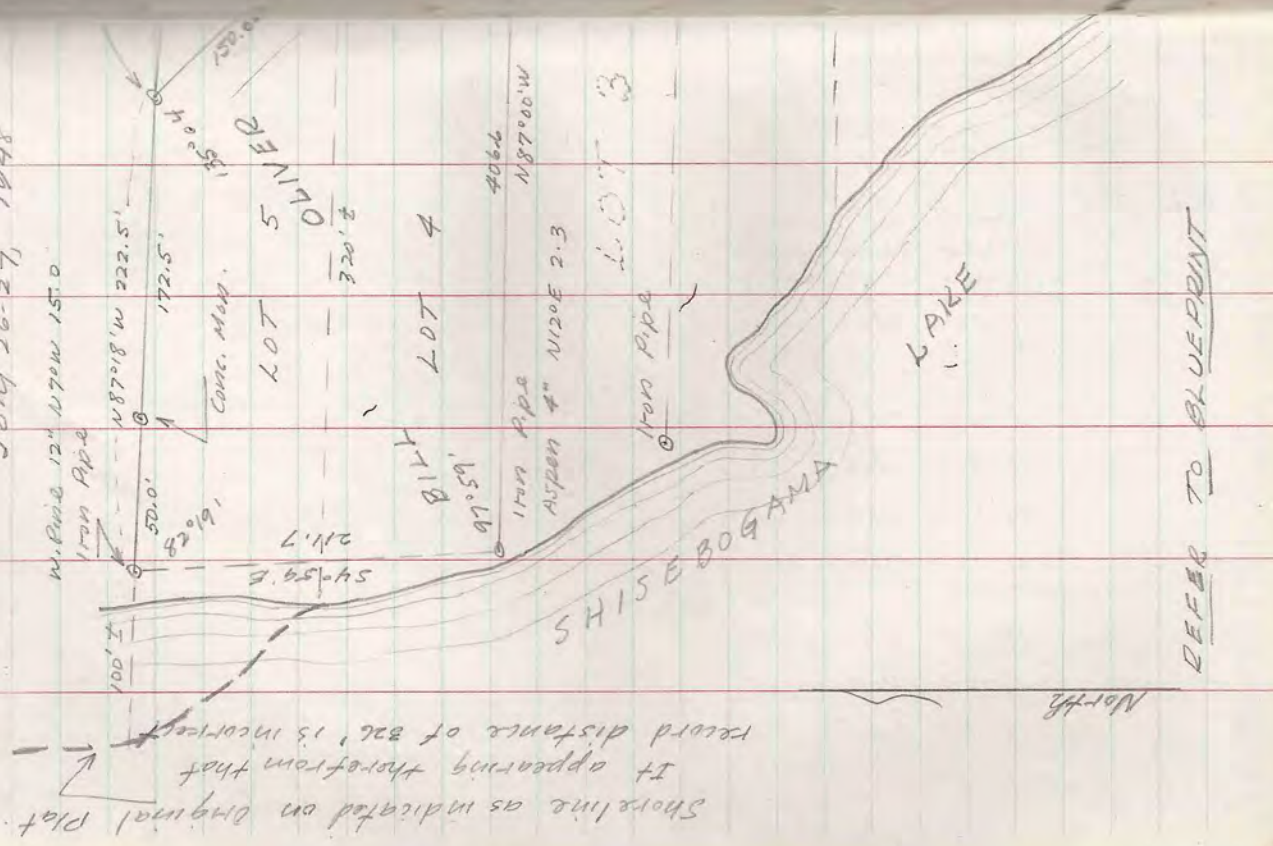 July 26-27, 1948
W. Pine 12" N70W 15.0
Iron Pipe
N87°18'W 222.5'
172.5'
50.0'
82°19'
Conc. Mon.
135°04
150.0
100' ±
LOT 5
OLIVER
320' ±
BILL
LOT 4
211.7
S4°59'E
97°59'
406.2
N87°00'W
Iron Pipe
Aspen 4" N120E 2.3
LOT 3
Iron Pipe
SHISEBOGAMA
LAKE
REFER TO BLUEPRINT
North
Shoreline as indicated on Original Plat.
It appearing therefrom that
record distance of 326' is incorrect